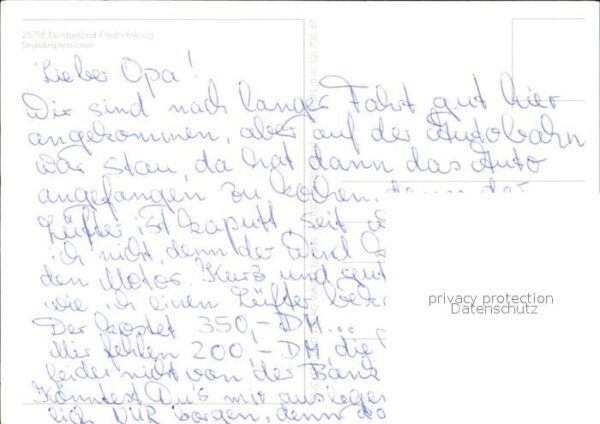 25718 Nordseebad Friedrichskoog
Strandimpressionen
Lieber Opa!
Wir sind nach langer Fahrt gut hier
angekommen, aber auf der Autobahn
war Stau, da hat dann das Auto
angefangen zu kochen, denn der
Lüfter ist kaputt seit
ich nicht, denn der Wind
den Motor. Kurz und gut
wie ich einen Lüfter
Der kostet 350,- DM...
Mir fehlen 200,- DM, die
leider nicht von der Bank
Könntest Du's mir auslegen
lich NUR borgen, denn
privacy protection
Datenschutz